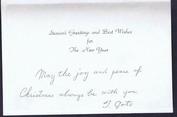 Season's Greetings and Best Wishes
for
The New Year
May the joy and peace of
Christmas always be with you